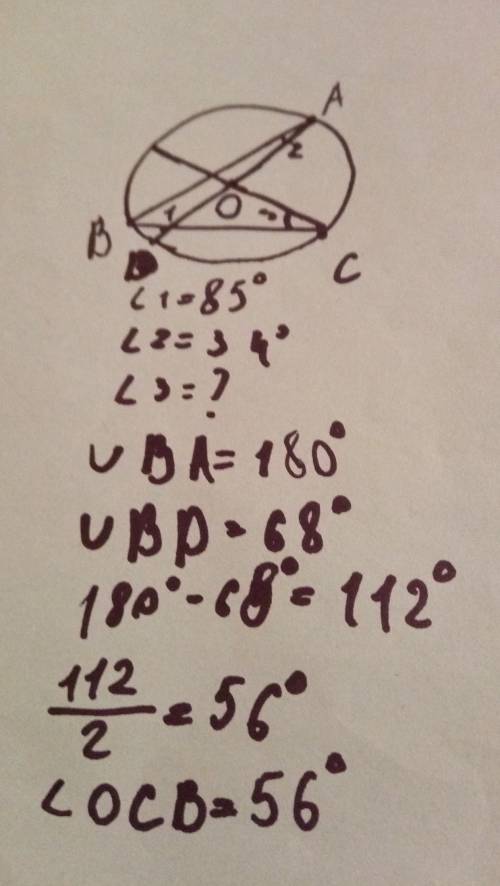 A
2
1
O
3
B
D
C
∠1=85°
∠2=34°
∠3=?
∪BA=180°
∪BD=68°
180°-68°=112°
112/2=56°
∠OCB=56°